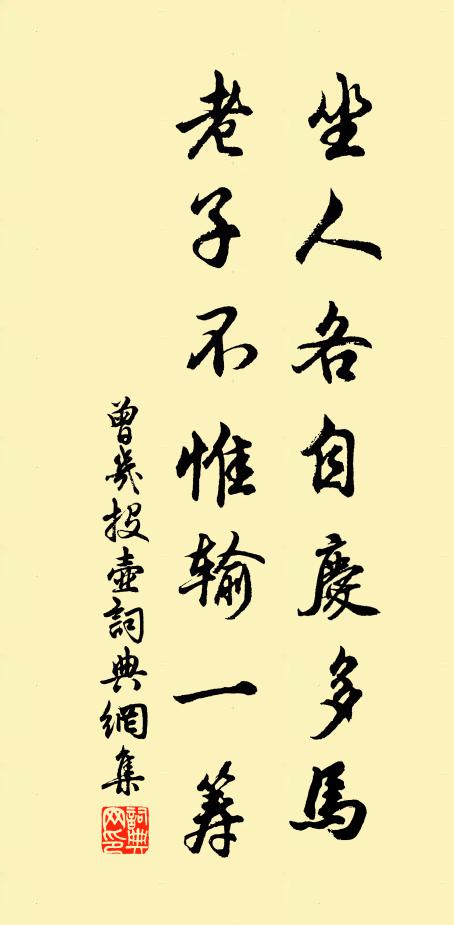 坐人各自慶多馬
老子不惟输一筹
曾幾投壺詞典網集
詞典网印